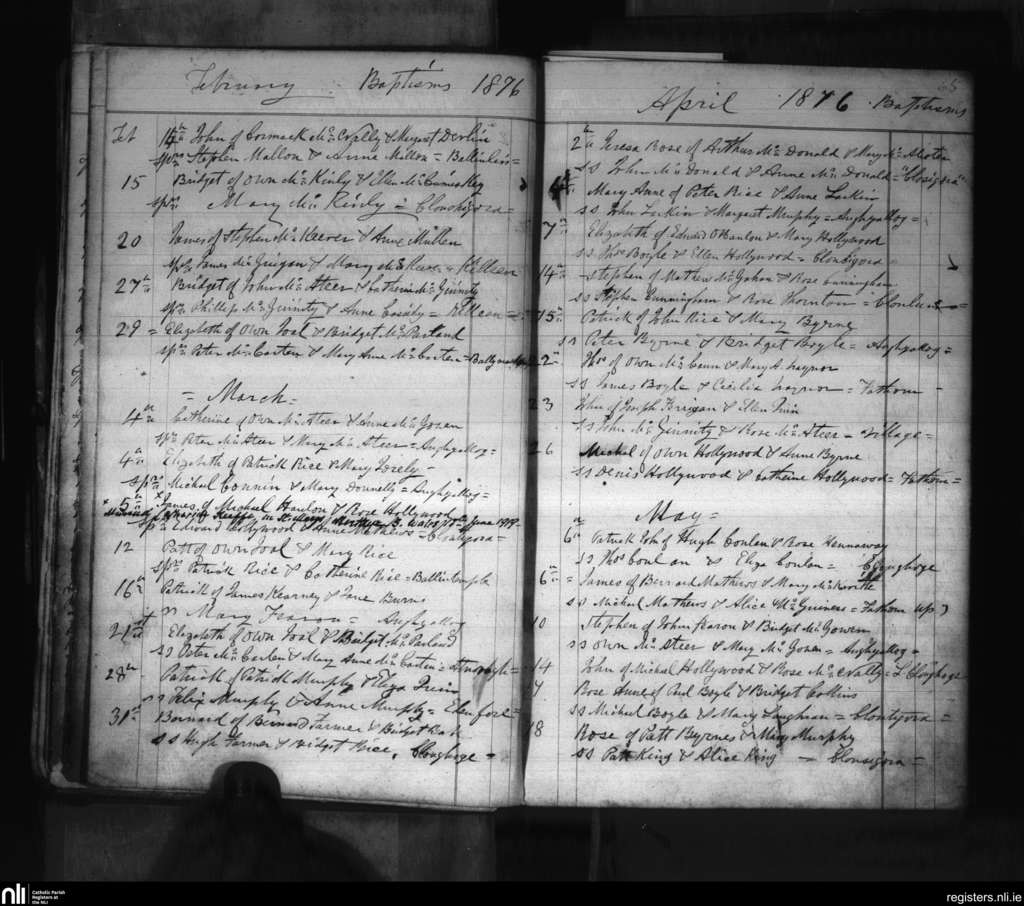 February Baptisms 1876
Feb 14th John of Cormack McNally & Margaret Devlin
spns Stephen Mallon & Anne Mallon =
15 Bridget of Own McKinly & Ellen
spns Mary McKinly = Clontigora =
20 James of Stephen McKeever & Anne Mullen
spns James McGuigan & Mary = Killean
27th Bridget of John McSteer & Catherine McGinnity
spns Phillip McGinnity & Anne Cassidy = Killean =
29 = Elizabeth of Own Toal & Bridget McParland
spns Peter McCarten & Mary Anne McCarten =
= March =
4th Catherine of Own McSteer & Anne McGowan
spns Peter McSteer & Mary McSteer = Aughyallog =
4th Elizabeth of Patrick Rice & Mary
spns Michael Connin & Mary Donnelly = Aughyallog =
5th James of Michael Hanlon & Rose Hollywood
Married June 1919
spns Edward Hollywood & Anne Mathews = Clontygora =
12 Patt of Own Toal & Mary Rice
spns Patrick Rice & Catherine Rice = Ballintemple
16th Patrick of James Kearney & Jane Burns
ss Mary Fearon = Aughyallog
21st Elizabeth of Own Toal & Bridget McParland
ss Peter McCarten & Mary Anne McCarten =
28th Patrick of Patrick Murphy & Eliza Quin
ss Felix Murphy & Anne Murphy = Ellenfore =
31st Bernard of Bernard Farmer & Bridget
ss Hugh Farmer & Bridget Rice, Cloughoge =
65
April 1876 Baptisms
2th Teresa Rose of Arthur McDonald & Mary
ss John McDonald & Anne McDonald = Clontigora
4th Mary Anne of Peter Rice & Anne Larkin
ss John Larkin & Margaret Murphy = Aughyallog =
7th Elizabeth of Edward OHanlon & Mary Hollywood
ss Thos Boyle & Ellen Hollywood = Clontigora
14th Stephen of Mathew McGahan & Rose Cunningham
ss Stephen Cunningham & Rose Thornton =
15 Patrick of John Rice & Mary Byrne
ss Peter Byrne & Bridget Boyle = Aughyallog =
22 Thos of Own McCann & Mary A. Traynor
ss James Boyle & Cecilia Traynor = Fathom
23 John of Joseph Ferrigan & Ellen Quin
ss John McGinnity & Rose McSteer = village =
26 Michael of Own Hollywood & Anne Byrne
ss Denis Hollywood & Catherine Hollywood = Fathom =
May =
6th Patrick of Hugh Conlan & Rose Hennaway
ss Thos Conlan & Eliza Conlan = Cloughoge
6th = James of Bernard Mathews & Mary
ss Michael Mathews & Alice = Fathom up
10 Stephen of John Fearon & Bridget McGowan
ss Own McSteer & Mary McGowan = Aughyallog =
14 John of Michael Hollywood & Rose McNally = Cloughoge
17 Rose Anne of Paul Boyle & Bridget Collins
ss Michael Boyle & Mary Loughran = Clontygora =
18 Rose of Patt Byrnes & Mary Murphy
ss Patt King & Alice King = Clontigora =
nli Catholic Parish Registers at the NLI
registers.nli.ie